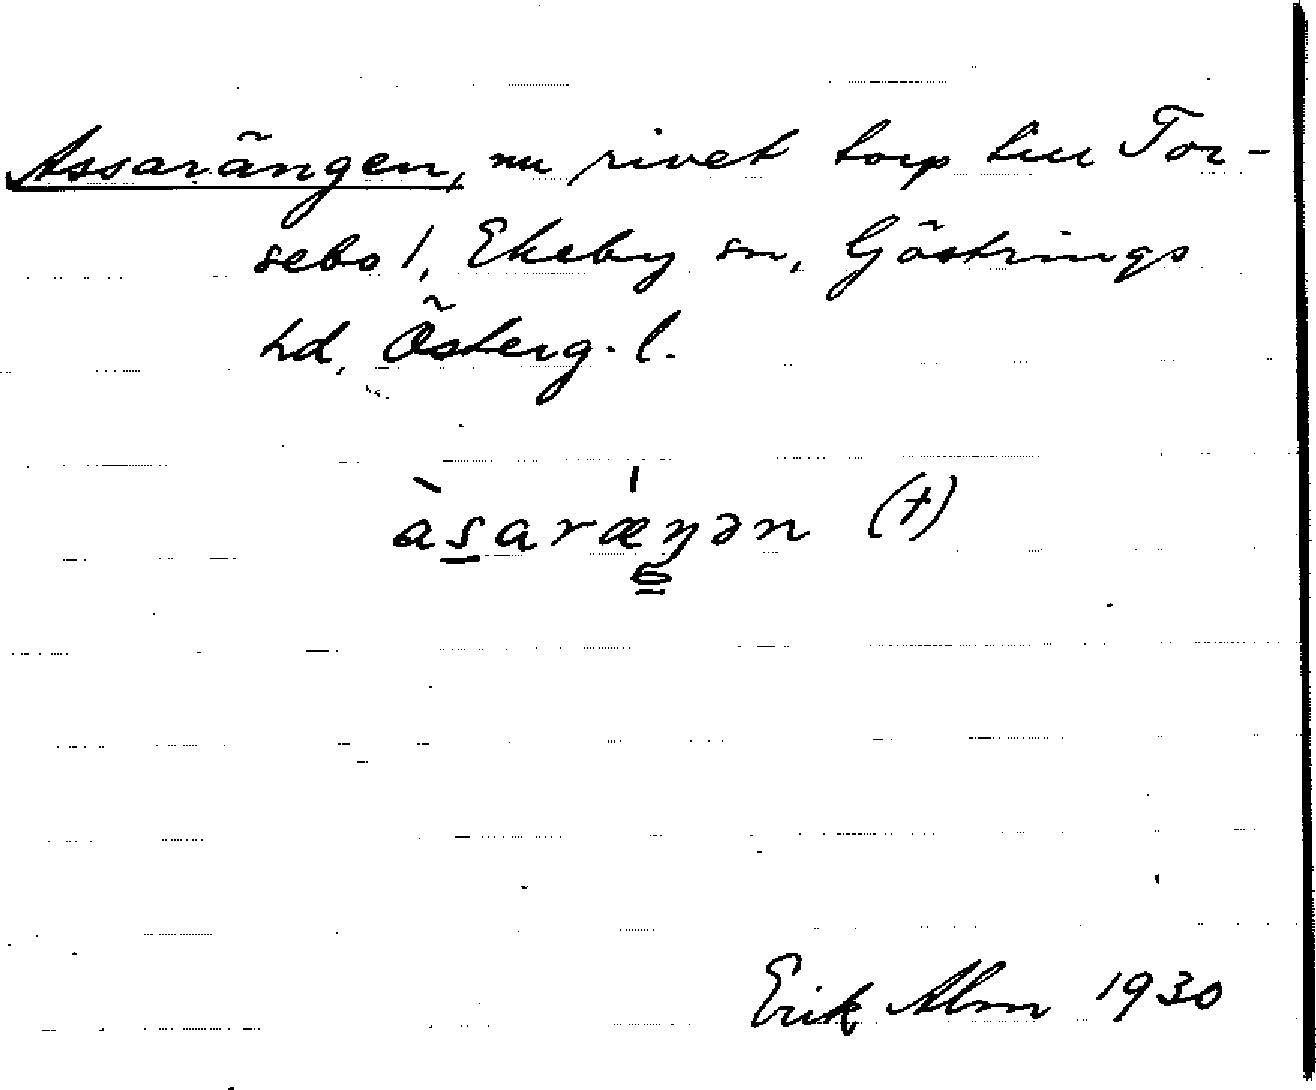 Assarängen, nu rivet torp till Tor-
sebo 1, Ekeby sn, Göstrings
hd, Österg. l.
às̱aráŋən (†)
Erik Alm 1930